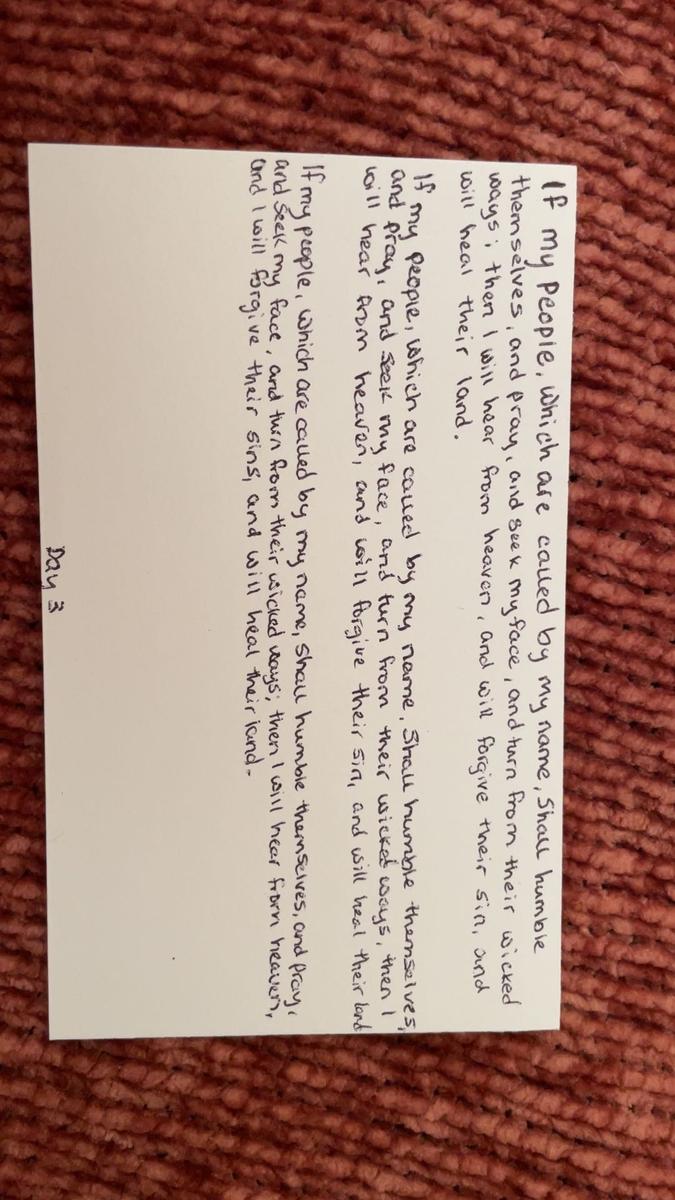 If my people, which are called by my name, Shall humble
themselves, and pray, and seek my face, and turn from their wicked
ways; then I will hear from heaven, and will forgive their sin, and
will heal their land.
If my people, which are called by my name, Shall humble themselves,
and pray, and seek my face, and turn from their wicked ways, then I
will hear from heaven, and will forgive their sin, and will heal their land
If my people, which are called by my name, Shall humble themselves, and pray,
and seek my face, and turn from their wicked ways; then I will hear from heaven,
and I will forgive their sins, and will heal their land.
Day 3